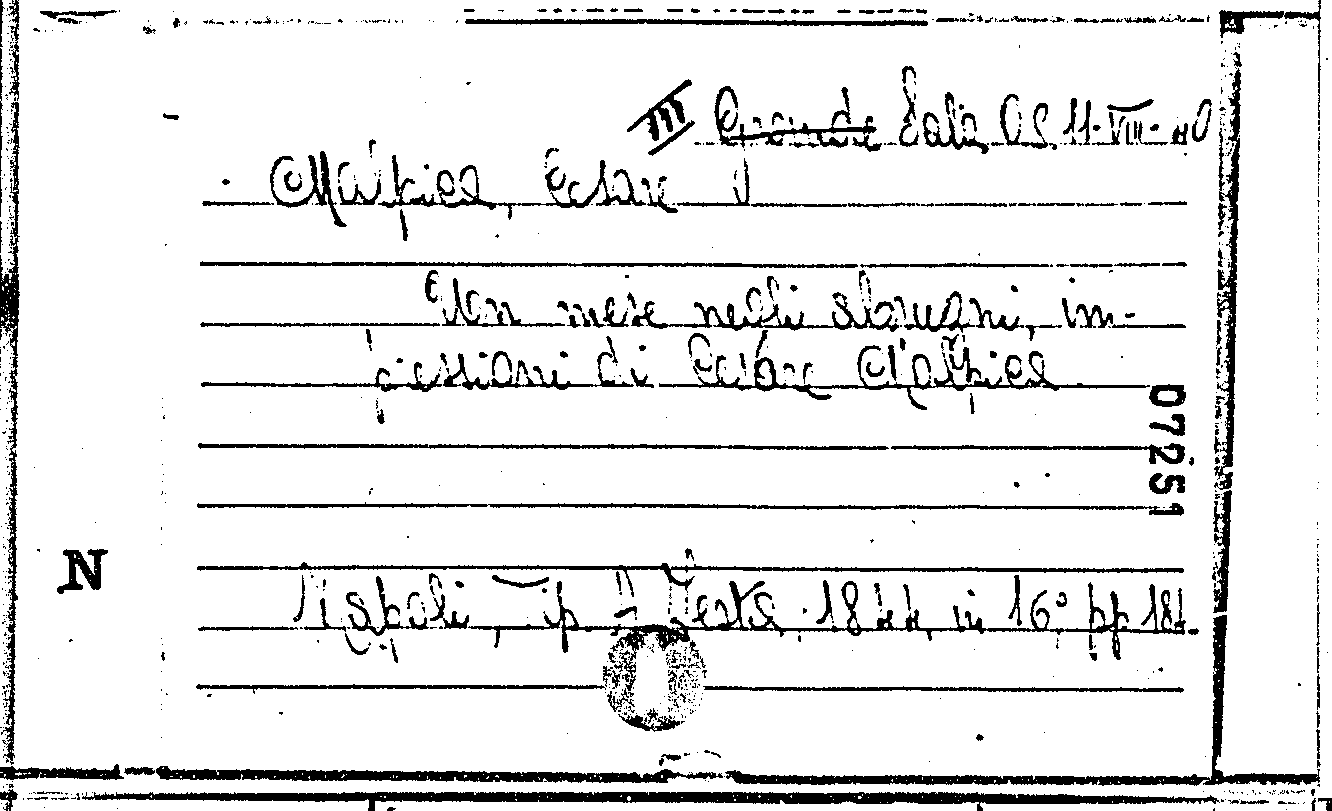 III Grande Sala OS. 11-VIII-40
Malpica, Cesare
Un mese negli abruzzi, im-
pressioni di Cesare Malpica
07251
N
Napoli, Tip. Testa, 1844, in 16°, pp